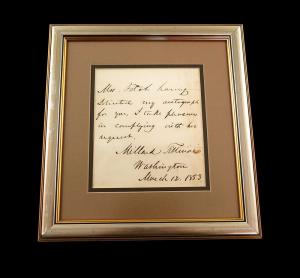 Mrs. Fish having
solicited my autograph
for you, I take pleasure
in complying with her
request.
Millard Fillmore
Washington
March 12. 1853